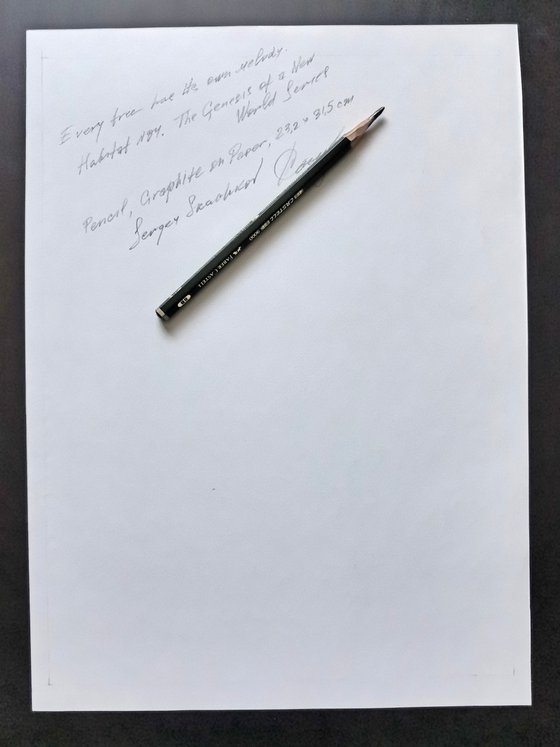 Every tree has its own melody.
Habitat The Genesis of a New
World Series
Pencil, Graphite on Paper, 23,2 x 31,5 cm
Sergey
FABER-CASTELL 9000